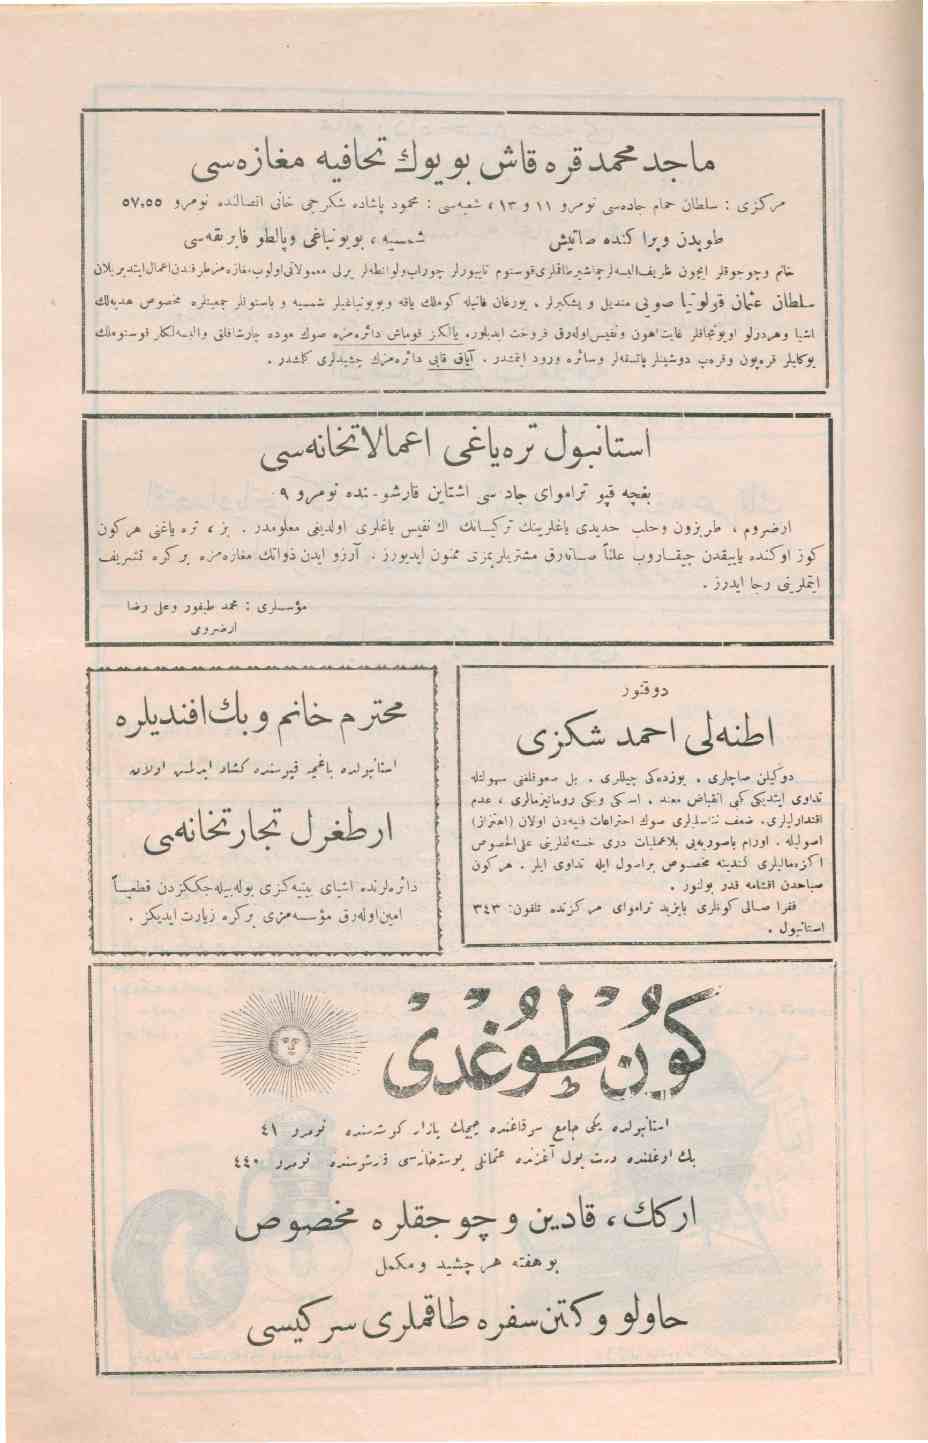 ماجد محمد قره قاش بويوك تحافيه مغازه‌سی
مركزی : سلطان حمام جاده‌سی نومرو ١١ و ١٣ ، شعبه‌سی : محمود پاشاده شكرجی خانی اتصالنده نومرو ٥٧،٥٥
طوپدن و پراكنده صاتيش
شمسيه ، بويونباغی و پالطو فابريقه‌سی
خانم و چوجوقلر ايچون ظريف البسه‌لر چماشير طاقملری قوستوم تايورلر چوراب و لوانطه‌لر يرلی معمولاتی اولوب مغازه‌مز طرفندن اعمال ايتديريلان
سلطان عثمان قولونيا صويی منديل و پشكيرلر . يورغان فانيله كوملك ياقه و بويونباغيلر شمسيه و باستونلر جمعيتلره مخصوص هديه‌لك
اشيا و هر درلو اويونجاقلر غايت اهون و نفيس اوله‌رق فروخت ايديلور. يالكز قوماش دائره‌مزه صوك موده چارشافلق و البسه‌لكلر قوستوملك
يوكليلر قره‌پون و قره‌پ دوشينلر پاتسقه‌لر و سائره ورود ايتمشدر . آياق قابی دائره‌مزك چشيدلری كلمشدر .
استانبول تره ياغی اعمالاتخانه‌سی
بغچه قپو تراموای جاده‌سی اشتاين قارشوسنده نومرو ٩
ارضروم ، طربزون و حلب حديدی ياغلرينك تركيبانك اك نفيس ياغلری اولديغی معلومدر . بز ، تره ياغنی هر كون
كوز اوكنده يابيقدن چيقاروب علناً صاته‌رق مشتريلريمزی ممنون ايديورز . آرزو ايدن ذواتك مغازه‌مزه بر كره تشريف
ايتملرينی رجا ايدرز .
مؤسسلری : محمد طيفور و علی رضا
ارضرومی
محترم خانم و بك افنديلره
استانبولده باغچه قپوسنده كشاد ايدلمش اولان
ارطغرل تجارتخانه‌سی
دائره‌لرنده اشيای بيتيه‌كزی بوله‌بيله‌جككزدن قطعياً
امين اوله‌رق مؤسسه‌مزی بر كره زيارت ايديكز .
دوقتور
اطنه‌لی احمد شكری
دوكيلن صاچلری . يوزده‌كی چيللری . بل صغوقلغنی سهولتله
تداوی ايتديكی كبی انقباض معده . اسكی و يكی روماتيزمالری ، عدم
اقتداريلری. ضعف تناسليلری صوك اختراعات فنيه‌دن اولان (اهتزاز)
اصوليله . اورام باصوريه‌يی بلاعمليات دری خسته‌لقلرينی علی الخصوص
اكزه‌مالیلری كندينه مخصوص بر اصول ايله تداوی ايلر . هر كون
صباحدن اقشامه قدر بولنور .
فقرا صالی كونلری بايزيد تراموای مركزنده تلفون: ٣٤٣
استانبول .
كون طوغدی
استانبولده يكی جامع سوقاغنده چيچك پازاری كوشه‌سنده نومرو ٤١
بك اوغلنده درت يول آغزنده عثمانلی پوسته‌خانه‌سی قارشوسنده نومرو ٤٤٠
اركك ، قادين و چوجقلره مخصوص
بو هفته هر چشيد و مكمل
حاولو و كتن سفره طاقملری سركيسی